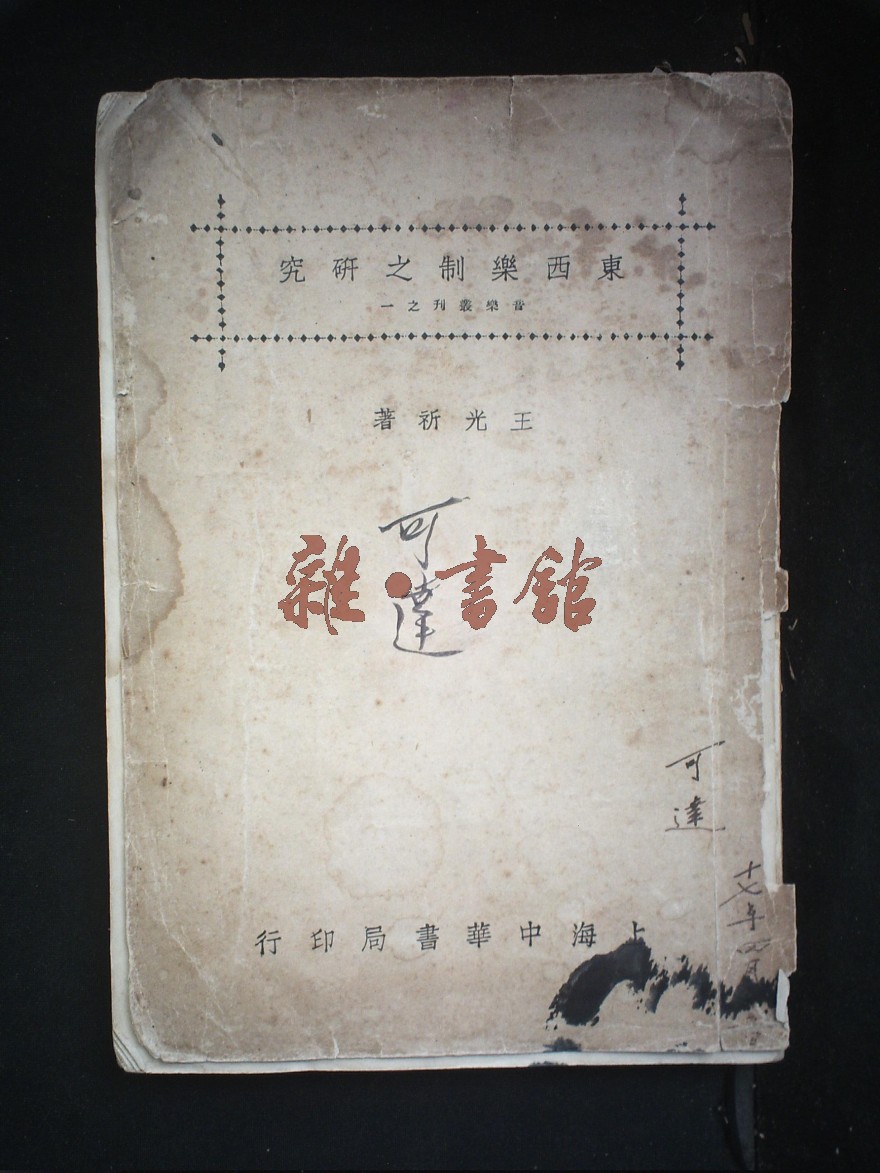 東西樂制之研究
音樂叢刊之一
王光祈著
可達
雜·書館
可達
十七年四月
上海中華書局印行